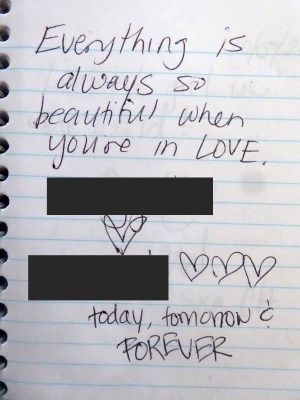 Everything is
always so
beautiful when
you're in LOVE.
today, tomorrow &
FOREVER